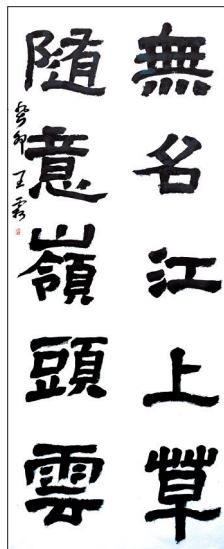 無名江上草
隨意嶺頭雲
癸卯 王